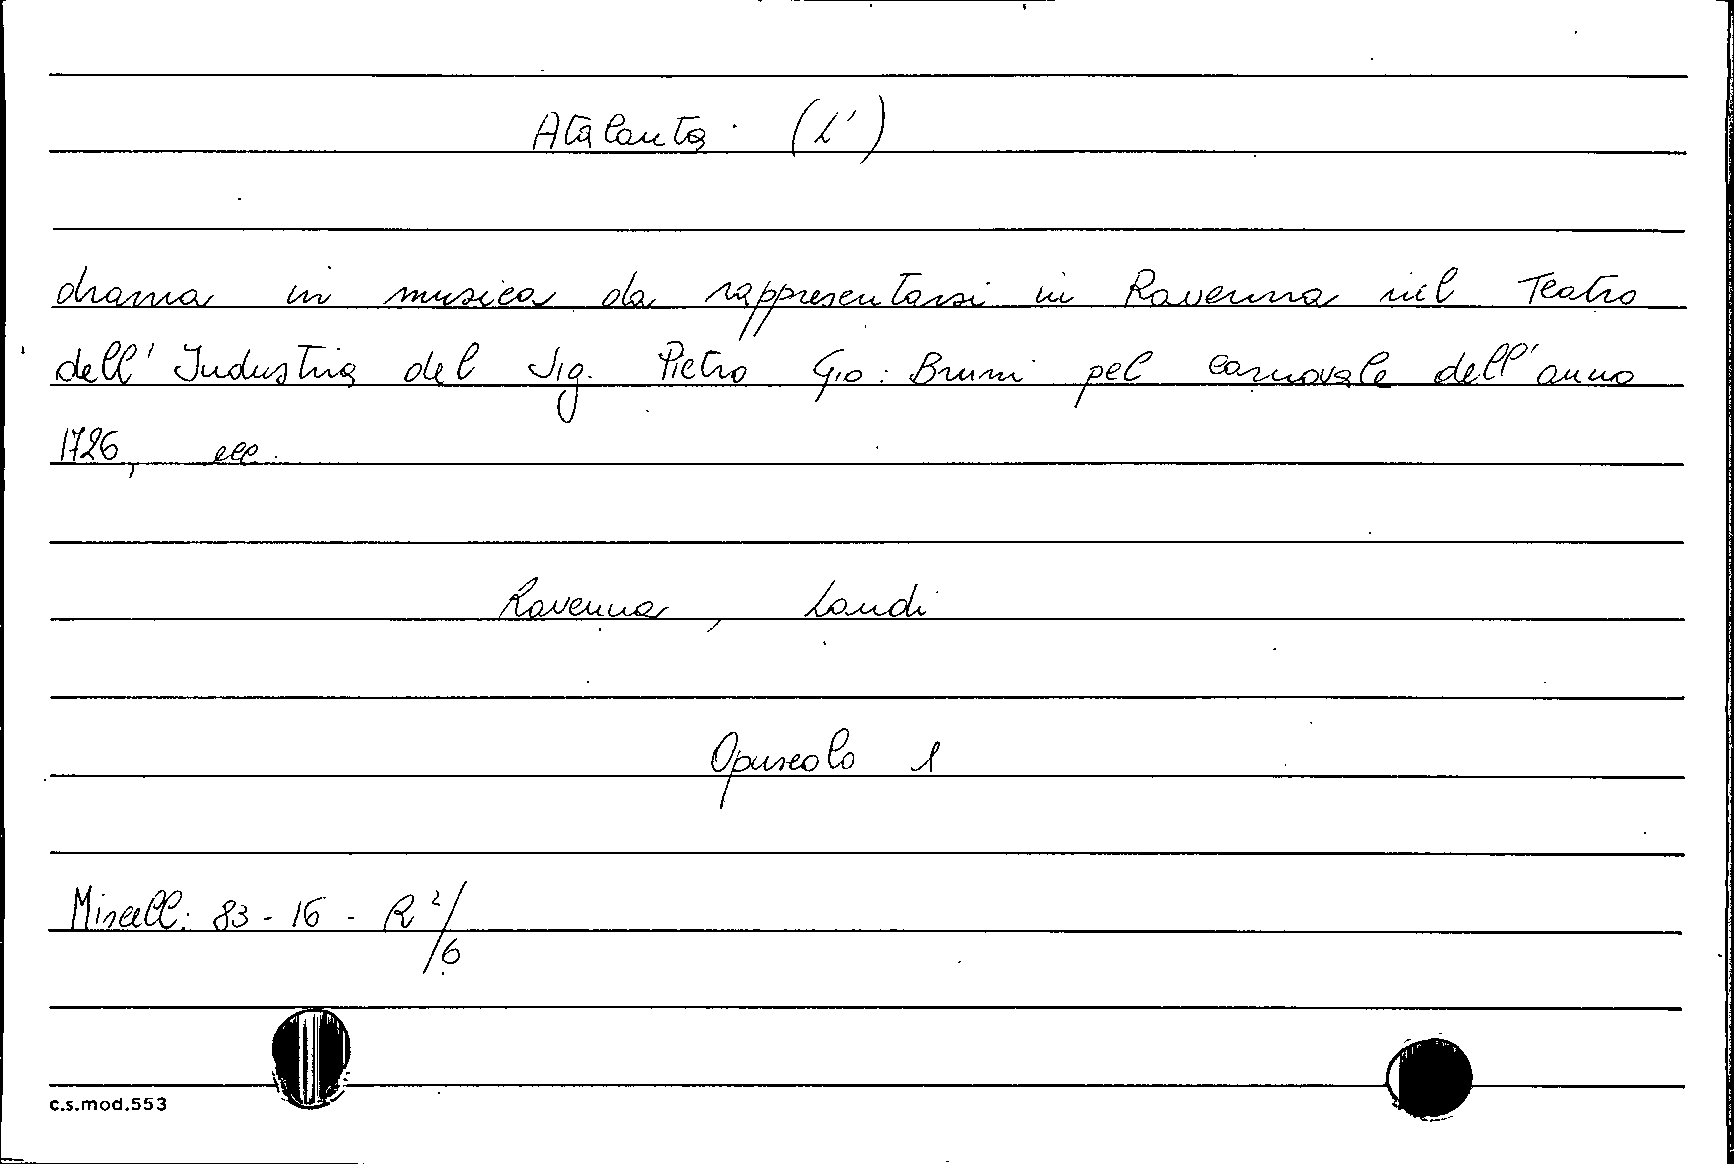 Atalanta (L')
drama in musica da rappresentarsi in Ravenna nel Teatro
dell'Industria del Sig. Pietro Gio: Bruni pel carnovale dell'anno
1726, ecc.
Ravenna, Landi
Opuscolo 1
Miscell: 83-16-R 2/6
c.s.mod.553